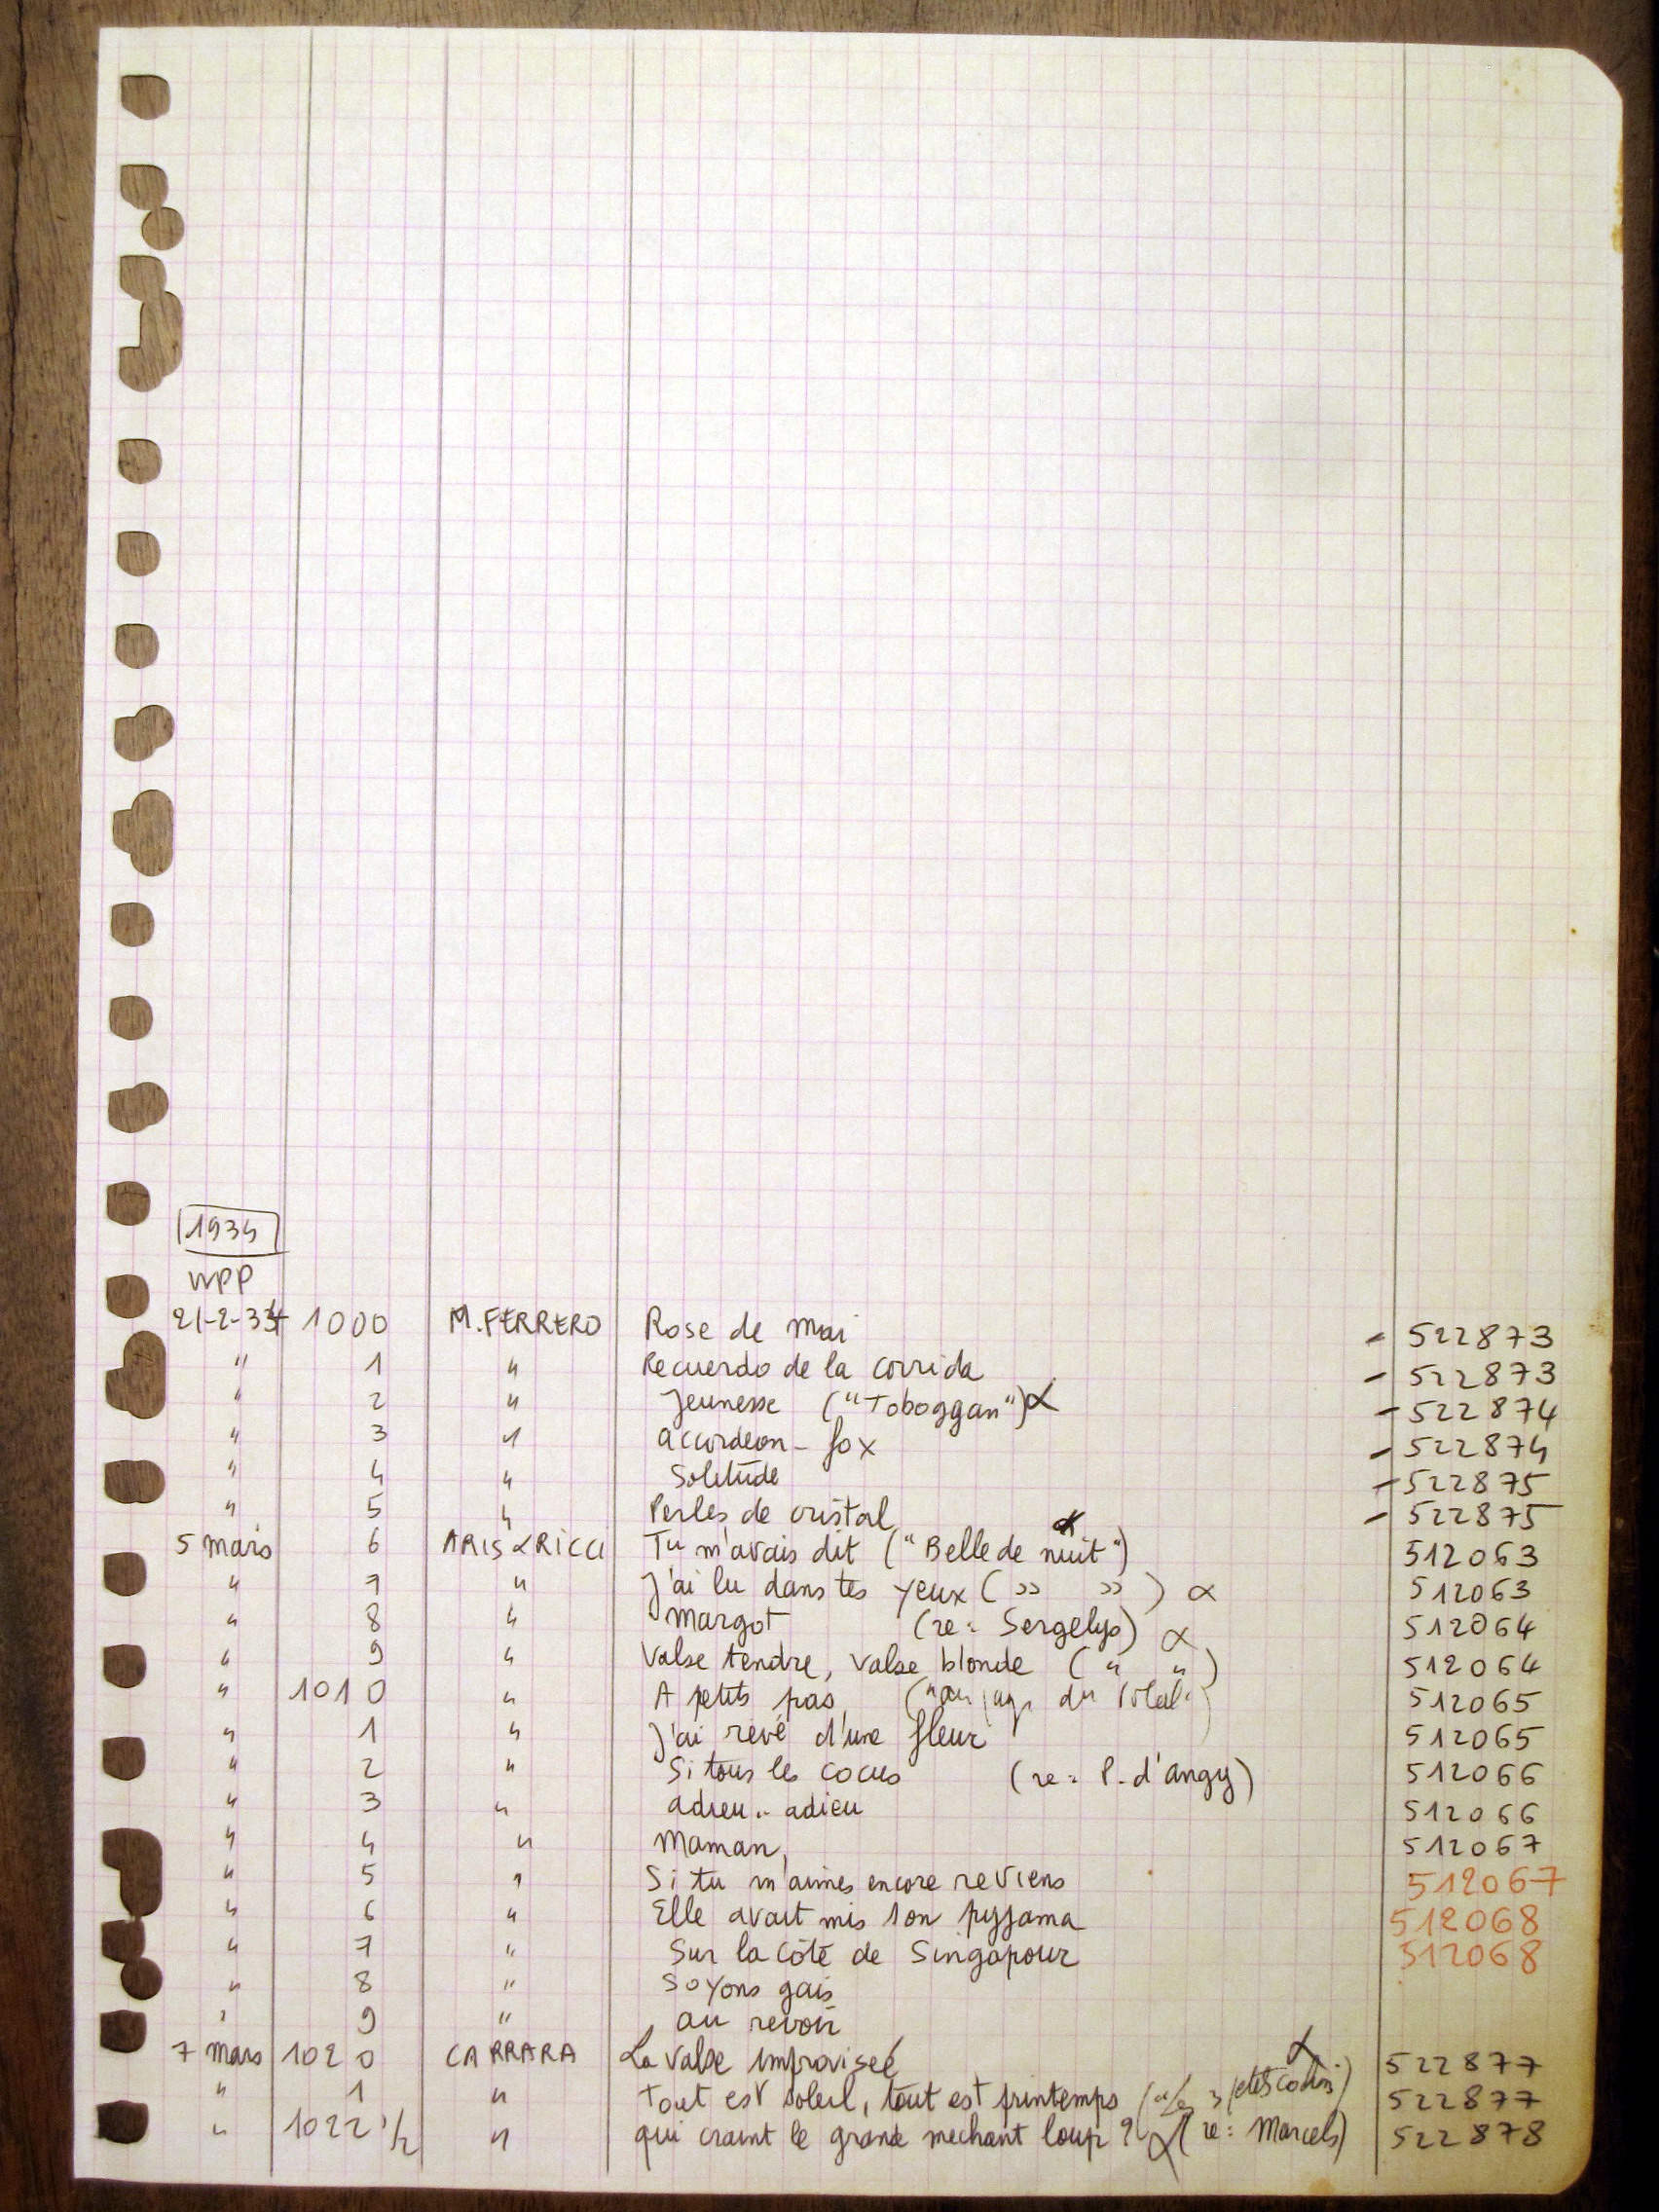 1934
WPP
21-2-34 1000 M. FERRERO Rose de mai - 522873
" 1 " Recuerdo de la corrida - 522873
" 2 " Jeunesse ("Toboggan") α - 522874
" 3 " accordeon - fox - 522874
" 4 " Solitude - 522875
" 5 " Perles de cristal - 522875
5 mars 6 ARIS & RICCI Tu m'avais dit ("Belle de nuit") α 512063
" 7 " J'ai lu dans tes yeux ( " " ) α 512063
" 8 " Margot (re: Sergelys) α 512064
" 9 " Valse tendre, valse blonde ( " " ) 512064
" 1010 " A petits pas du 512065
" 1 " J'ai revé d'une fleur 512065
" 2 " Si tous les cocus (re: P. d'angy) 512066
" 3 " adieu.. adieu 512066
" 4 " Maman, 512067
" 5 " Si tu m'aimes encore reviens 512067
" 6 " Elle avait mis son pyjama 512068
" 7 " Sur la côte de Singapour 512068
" 8 " Soyons gais
" 9 " au revoir
7 mars 1020 CARRARA La valse improviseé 522877
" 1 " Tout est soleil, tout est printemps α 522877
" 1022 1/2 " qui craint le grand mechant loup ? α (re: Marcels) 522878